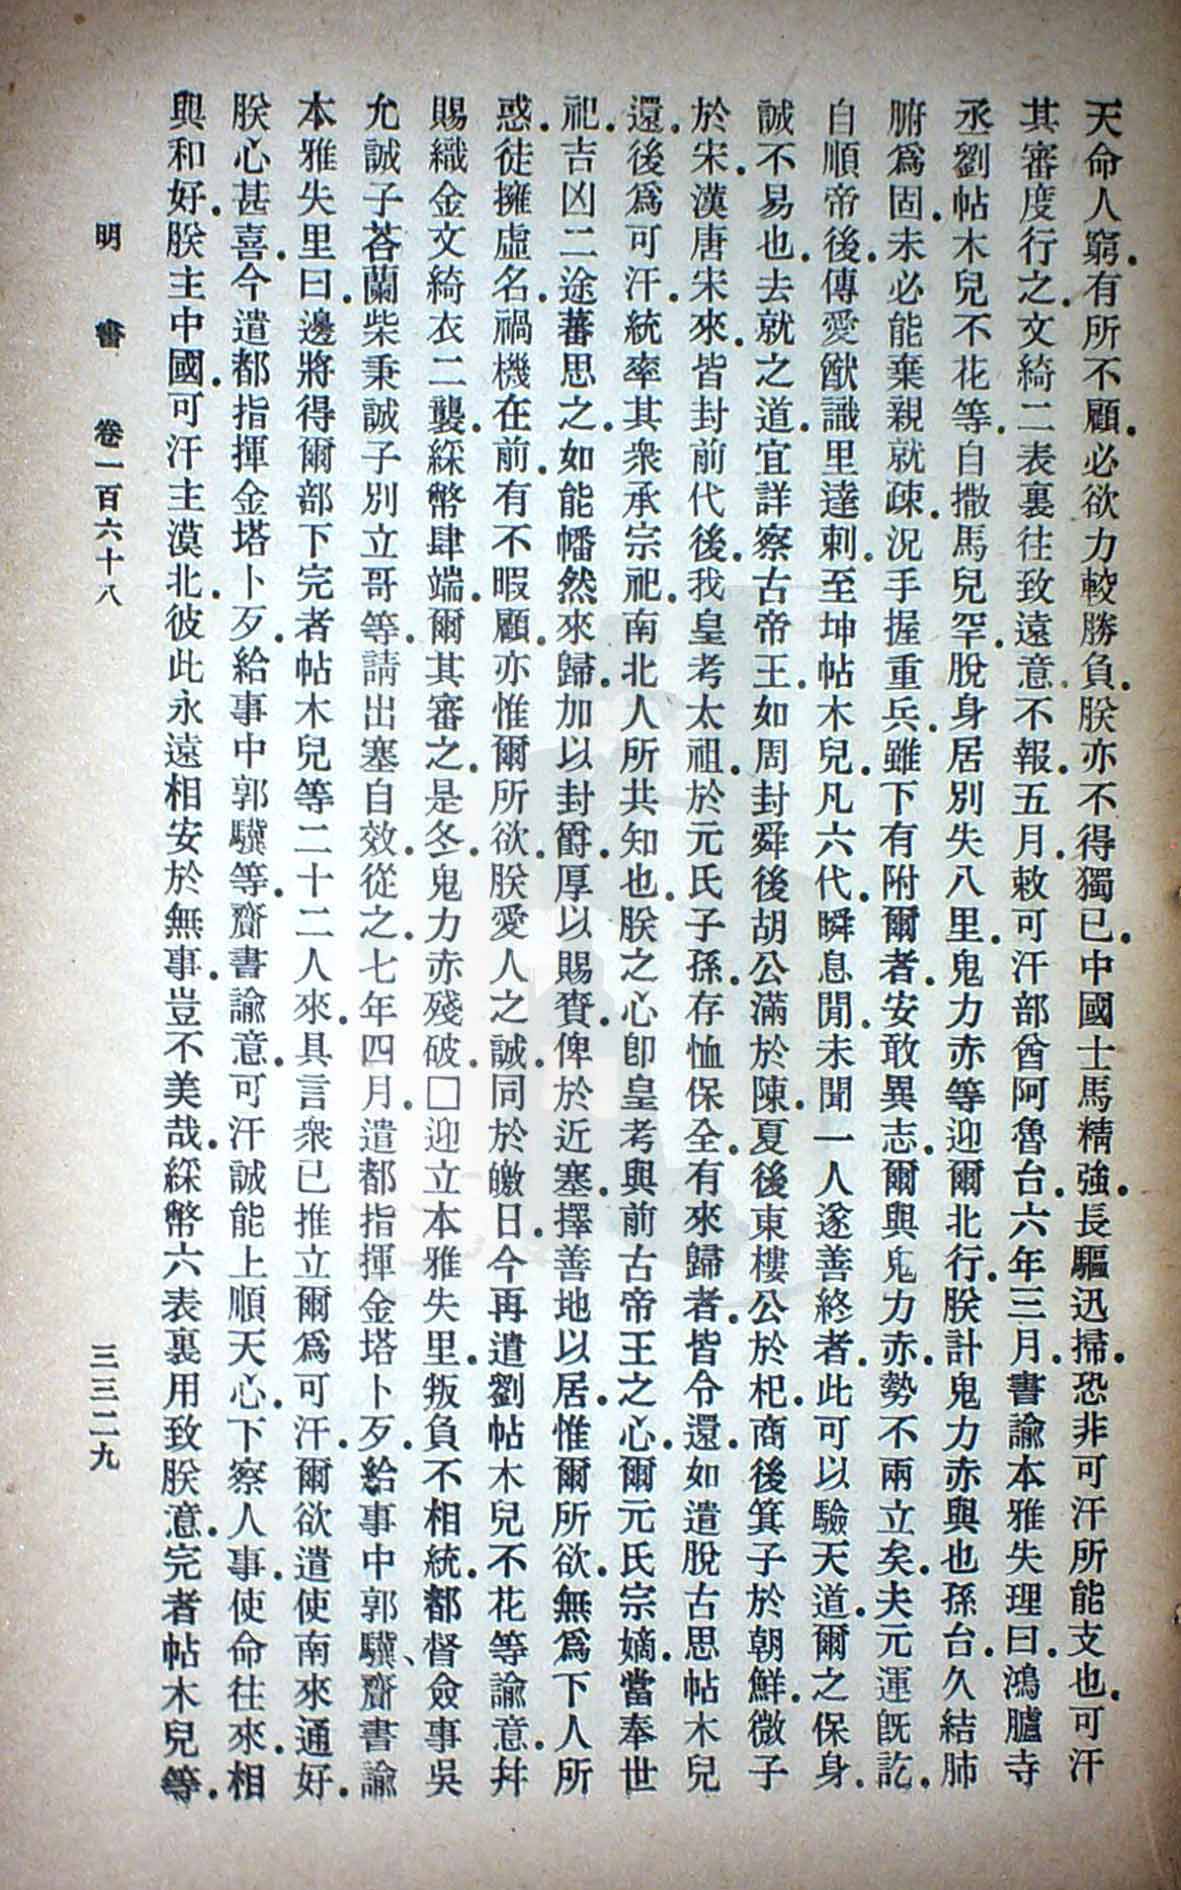 天命人窮。有所不顧。必欲力較勝負。朕亦不得獨已。中國士馬精強。長驅迅掃。恐非可汗所能支也。可汗
其審度行之。文綺二表裏往致遠意不報。五月。敕可汗部酋阿魯台。六年三月。書諭本雅失理曰。鴻臚寺
丞劉帖木兒不花等。自撒馬兒罕。脫身居別失八里。鬼力赤等迎爾北行。朕計鬼力赤與也孫台。久結肺
腑爲固。未必能棄親就疎。況手握重兵。雖下有附爾者。安敢異志。爾與鬼力赤。勢不兩立矣。夫元運旣訖。
自順帝後。傳愛猷識里達剌。至坤帖木兒。凡六代。瞬息閒。未聞一人遂善終者。此可以驗天道。爾之保身。
誠不易也。去就之道。宜詳察古帝王。如周封舜後胡公滿於陳。夏後東樓公於杞。商後箕子於朝鮮。微子
於宋。漢唐宋來。皆封前代後。我皇考太祖。於元氏子孫。存恤保全。有來歸者。皆令還。如遣脫古思帖木兒
還。後爲可汗。統率其衆承宗祀。南北人所共知也。朕之心卽皇考與前古帝王之心。爾元氏宗嫡。當奉世
祀。吉凶二途。蕃思之。如能幡然來歸。加以封爵。厚以賜賚。俾於近塞。擇善地以居。惟爾所欲。無爲下人所
惑。徒擁虛名。禍機在前。有不暇顧。亦惟爾所欲。朕愛人之誠。同於皦日。今再遣劉帖木兒不花等諭意。幷
賜織金文綺衣二襲。綵幣肆端。爾其審之。是冬。鬼力赤殘破。□迎立本雅失里。叛負不相統。都督僉事吳
允誠子荅蘭柴秉誠子別立哥等。請出塞自效。從之。七年四月。遣都指揮金塔卜歹。給事中郭驥、齎書諭
本雅失里曰。邊將得爾部下完者帖木兒等二十二人來。具言衆已推立爾爲可汗。爾欲遣使南來通好。
朕心甚喜。今遣都指揮金塔卜歹。給事中郭驥等。齎書諭意。可汗誠能上順天心。下察人事。使命往來。相
與和好。朕主中國。可汗主漠北。彼此永遠相安於無事。豈不美哉。綵幣六表裏用致朕意。完者帖木兒等。
明書 卷一百六十八 三三二九